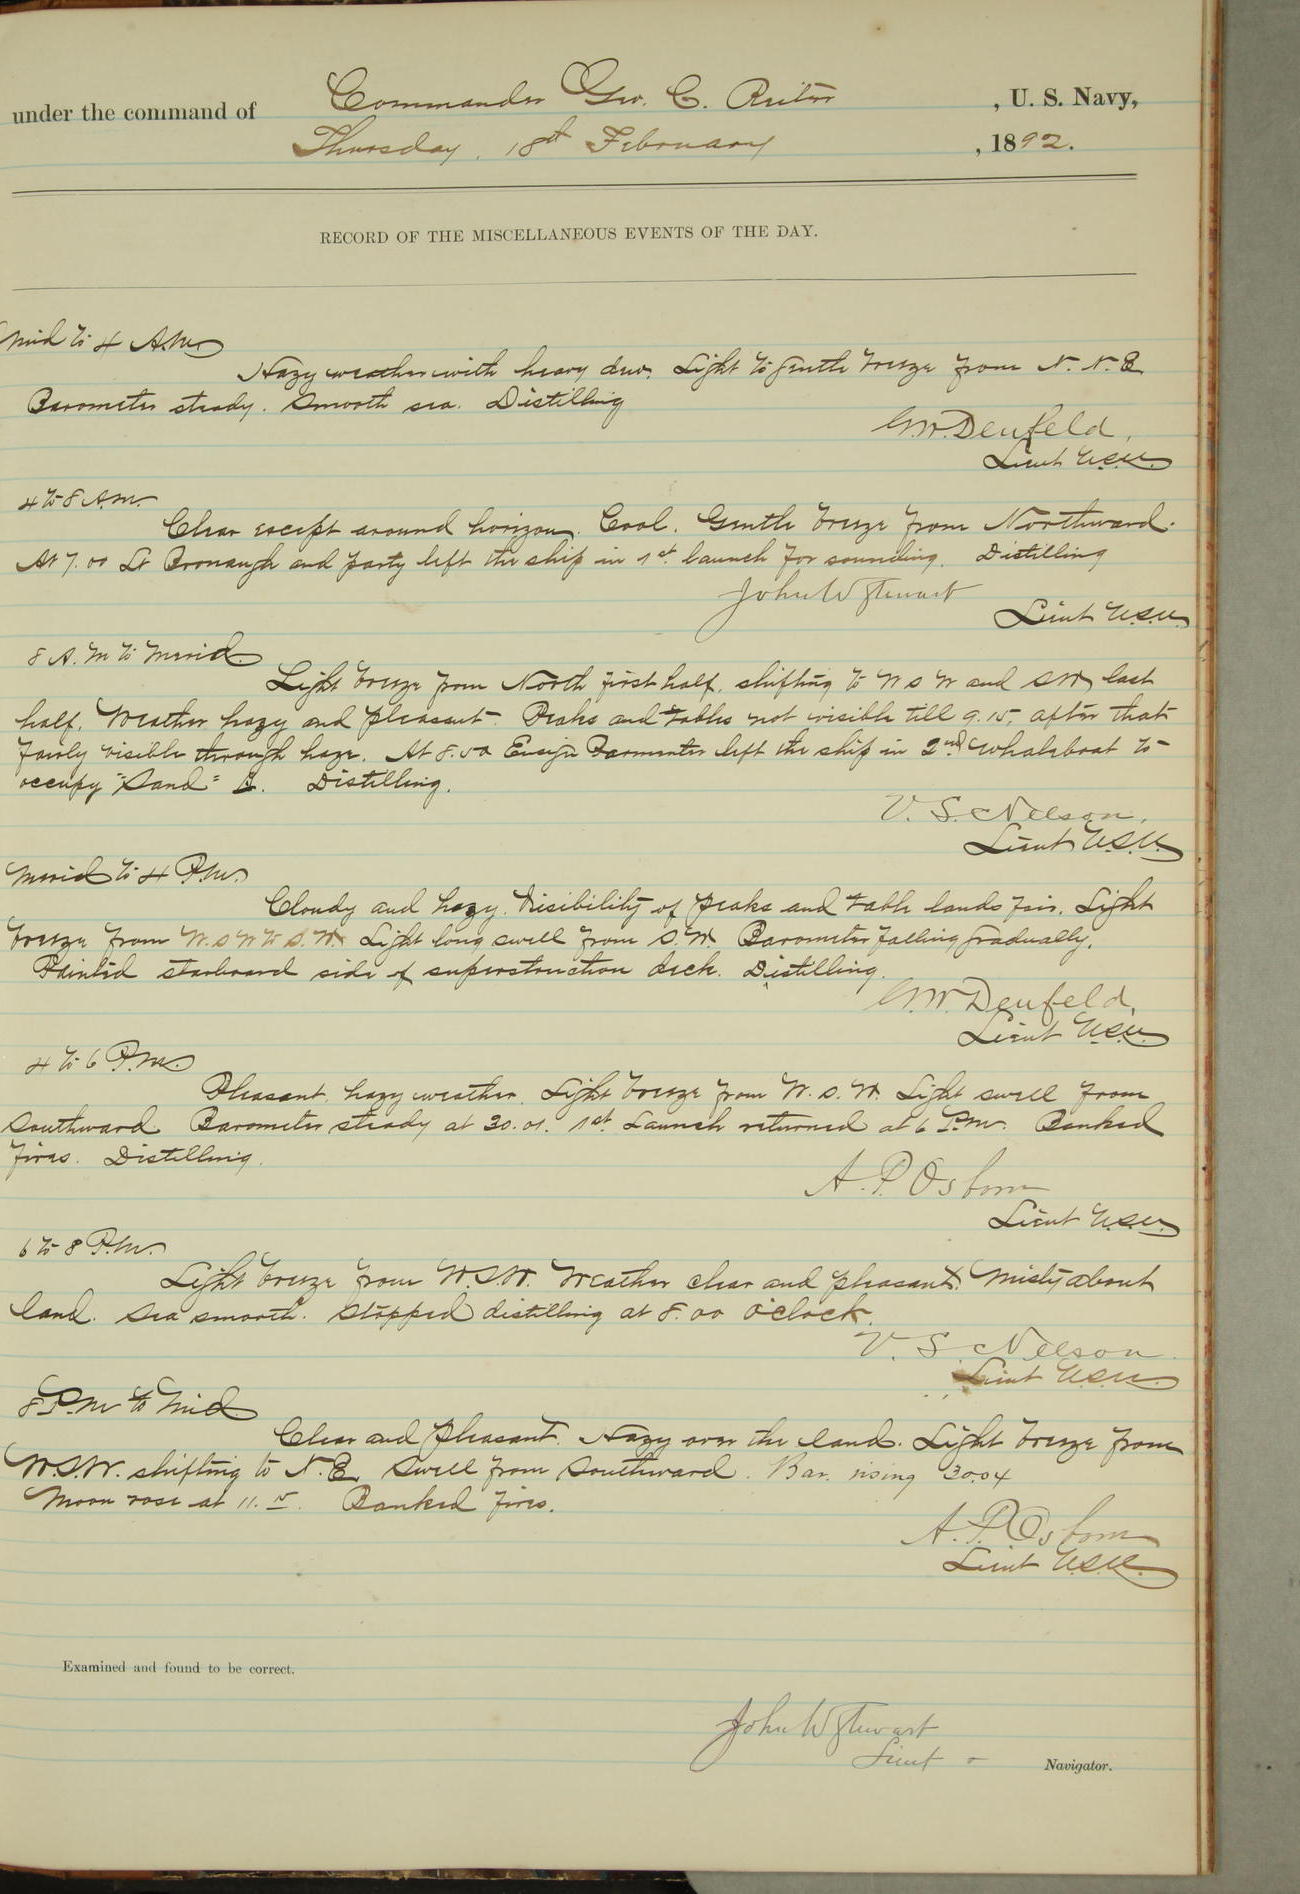 under the command of Commander Geo. C. Reiter, U. S. Navy,
Thursday, 18th February, 1892.
RECORD OF THE MISCELLANEOUS EVENTS OF THE DAY.
Mid to 4 A.M.
Hazy weather with heavy dew. Light to gentle breeze from N. N. E.
Barometer steady. Smooth sea. Distilling
G.W. Denfeld,
Lieut U.S.N.
4 to 8 A.M.
Clear except around horizon. Cool. Gentle breeze from Northward.
At 7.00 Lt Bronaugh and party left the ship in 1st. launch for sounding. Distilling
John W Stewart
Lieut U.S.N.
8 A.M to Merid.
Light breeze from North first half, shifting to W S W and SW last
half. Weather hazy and pleasant. Peaks and tables not visible till 9.15, after that
fairly visible through haze. At 8.50 Ensign Parmenter left the ship in 2nd Whaleboat to
occupy "Sand" Δ. Distilling.
V. S. Nelson,
Lieut U.S.N.
Merid to 4 P.M.
Cloudy and hazy. Visibility of peaks and table lands fair. Light
breeze from W.S W to S.W. Light long swell from S.W. Barometer falling gradually.
Painted starboard side of superstruction deck. Distilling.
G.W. Denfeld,
Lieut U.S.N.
4 to 6 P.M.
Pleasant, hazy weather. Light breeze from W. S. W. Light swell from
Southward. Barometer steady at 30.01. 1st. Launch returned at 6 P.M. Banked
fires. Distilling.
A. P. Osborn
Lieut U.S.N.
6 to 8 P.M.
Light breeze from W.S.W. Weather clear and pleasant. Misty about
land. Sea smooth. Stopped distilling at 8.00 o'clock.
V. S. Nelson
Lieut U.S.N.
8 P.M to Mid
Clear and pleasant. Hazy over the land. Light breeze from
W.S.W. shifting to N.E. Swell from Southward. Bar. rising 30.04
Moon rose at 11. Banked fires.
A. P. Osborn
Lieut U.S.N.
Examined and found to be correct.
John W Stewart
Lieut Navigator.